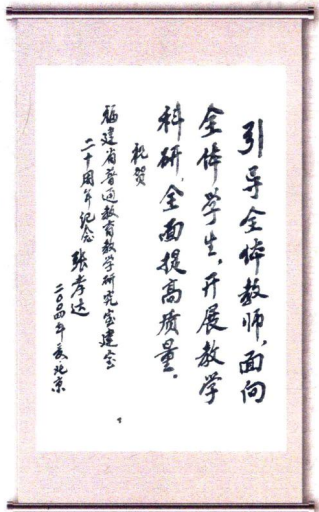 引导全体教师,面向
全体学生,开展教学
科研,全面提高质量。
祝贺
福建省普通教育教学研究室建室
二十周年纪念
张孝达
二〇〇四年夏·北京